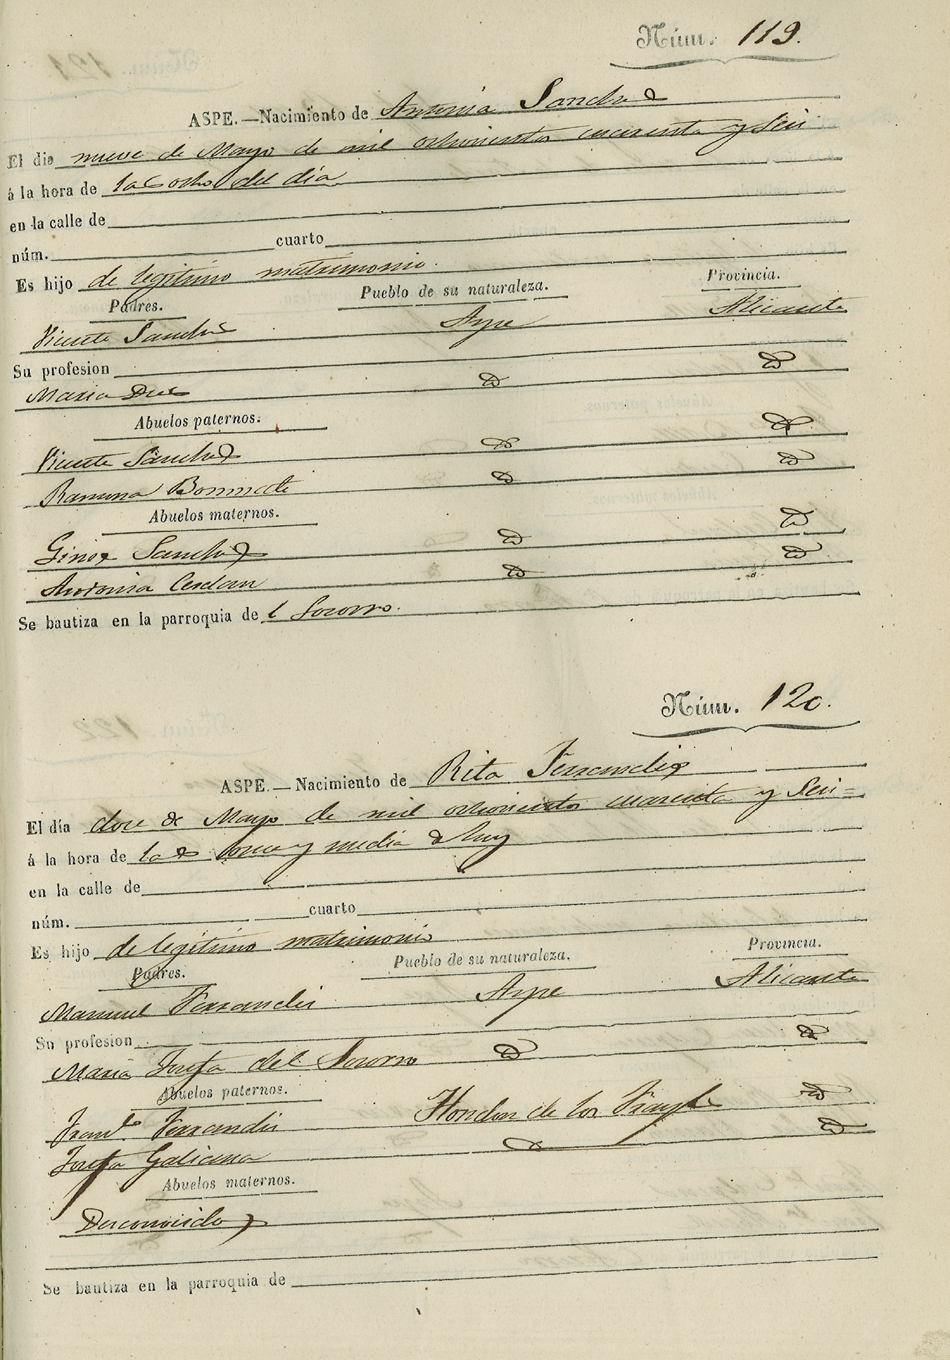 Núm. 119.
ASPE.—Nacimiento de Antonia Sanchez
El dia nueve de Mayo de mil ochocientos cuarenta y seis
á la hora de las ocho del dia
en la calle de
núm. cuarto
Es hijo de legitimo matrimonio.
Padres. Pueblo de su naturaleza. Provincia.
Vicente Sanchez Aspe Alicante
Su profesion
Maria
Abuelos paternos.
Vicente Sanchez
Ramona Bonmati
Abuelos maternos.
Gines Sanchez
Antonia Cerdan
Se bautiza en la parroquia de l Socorro.
Núm. 120.
ASPE.—Nacimiento de Rita Ferrandiz
El día doce de Mayo de mil ochocientos cuarenta y seis=
á la hora de las once y media de hoy
en la calle de
núm. cuarto
Es hijo de legitimo matrimonio
Padres. Pueblo de su naturaleza. Provincia.
Manuel Ferrandis Aspe Alicante
Su profesion
Maria Josefa del Socorro
Abuelos paternos.
Ferrandis Hondon de los Frayles
Josefa Galiana
Abuelos maternos.
Desconocidos
Se bautiza en la parroquia de